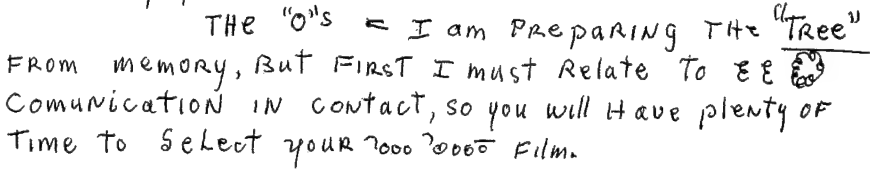 THE "O"s = I am PREPARING THE "TREE"
FROM memory, BUT FIRST I must Relate To
ComuNicatION IN contact, so you will Have plenty OF
Time To Select youR Film.